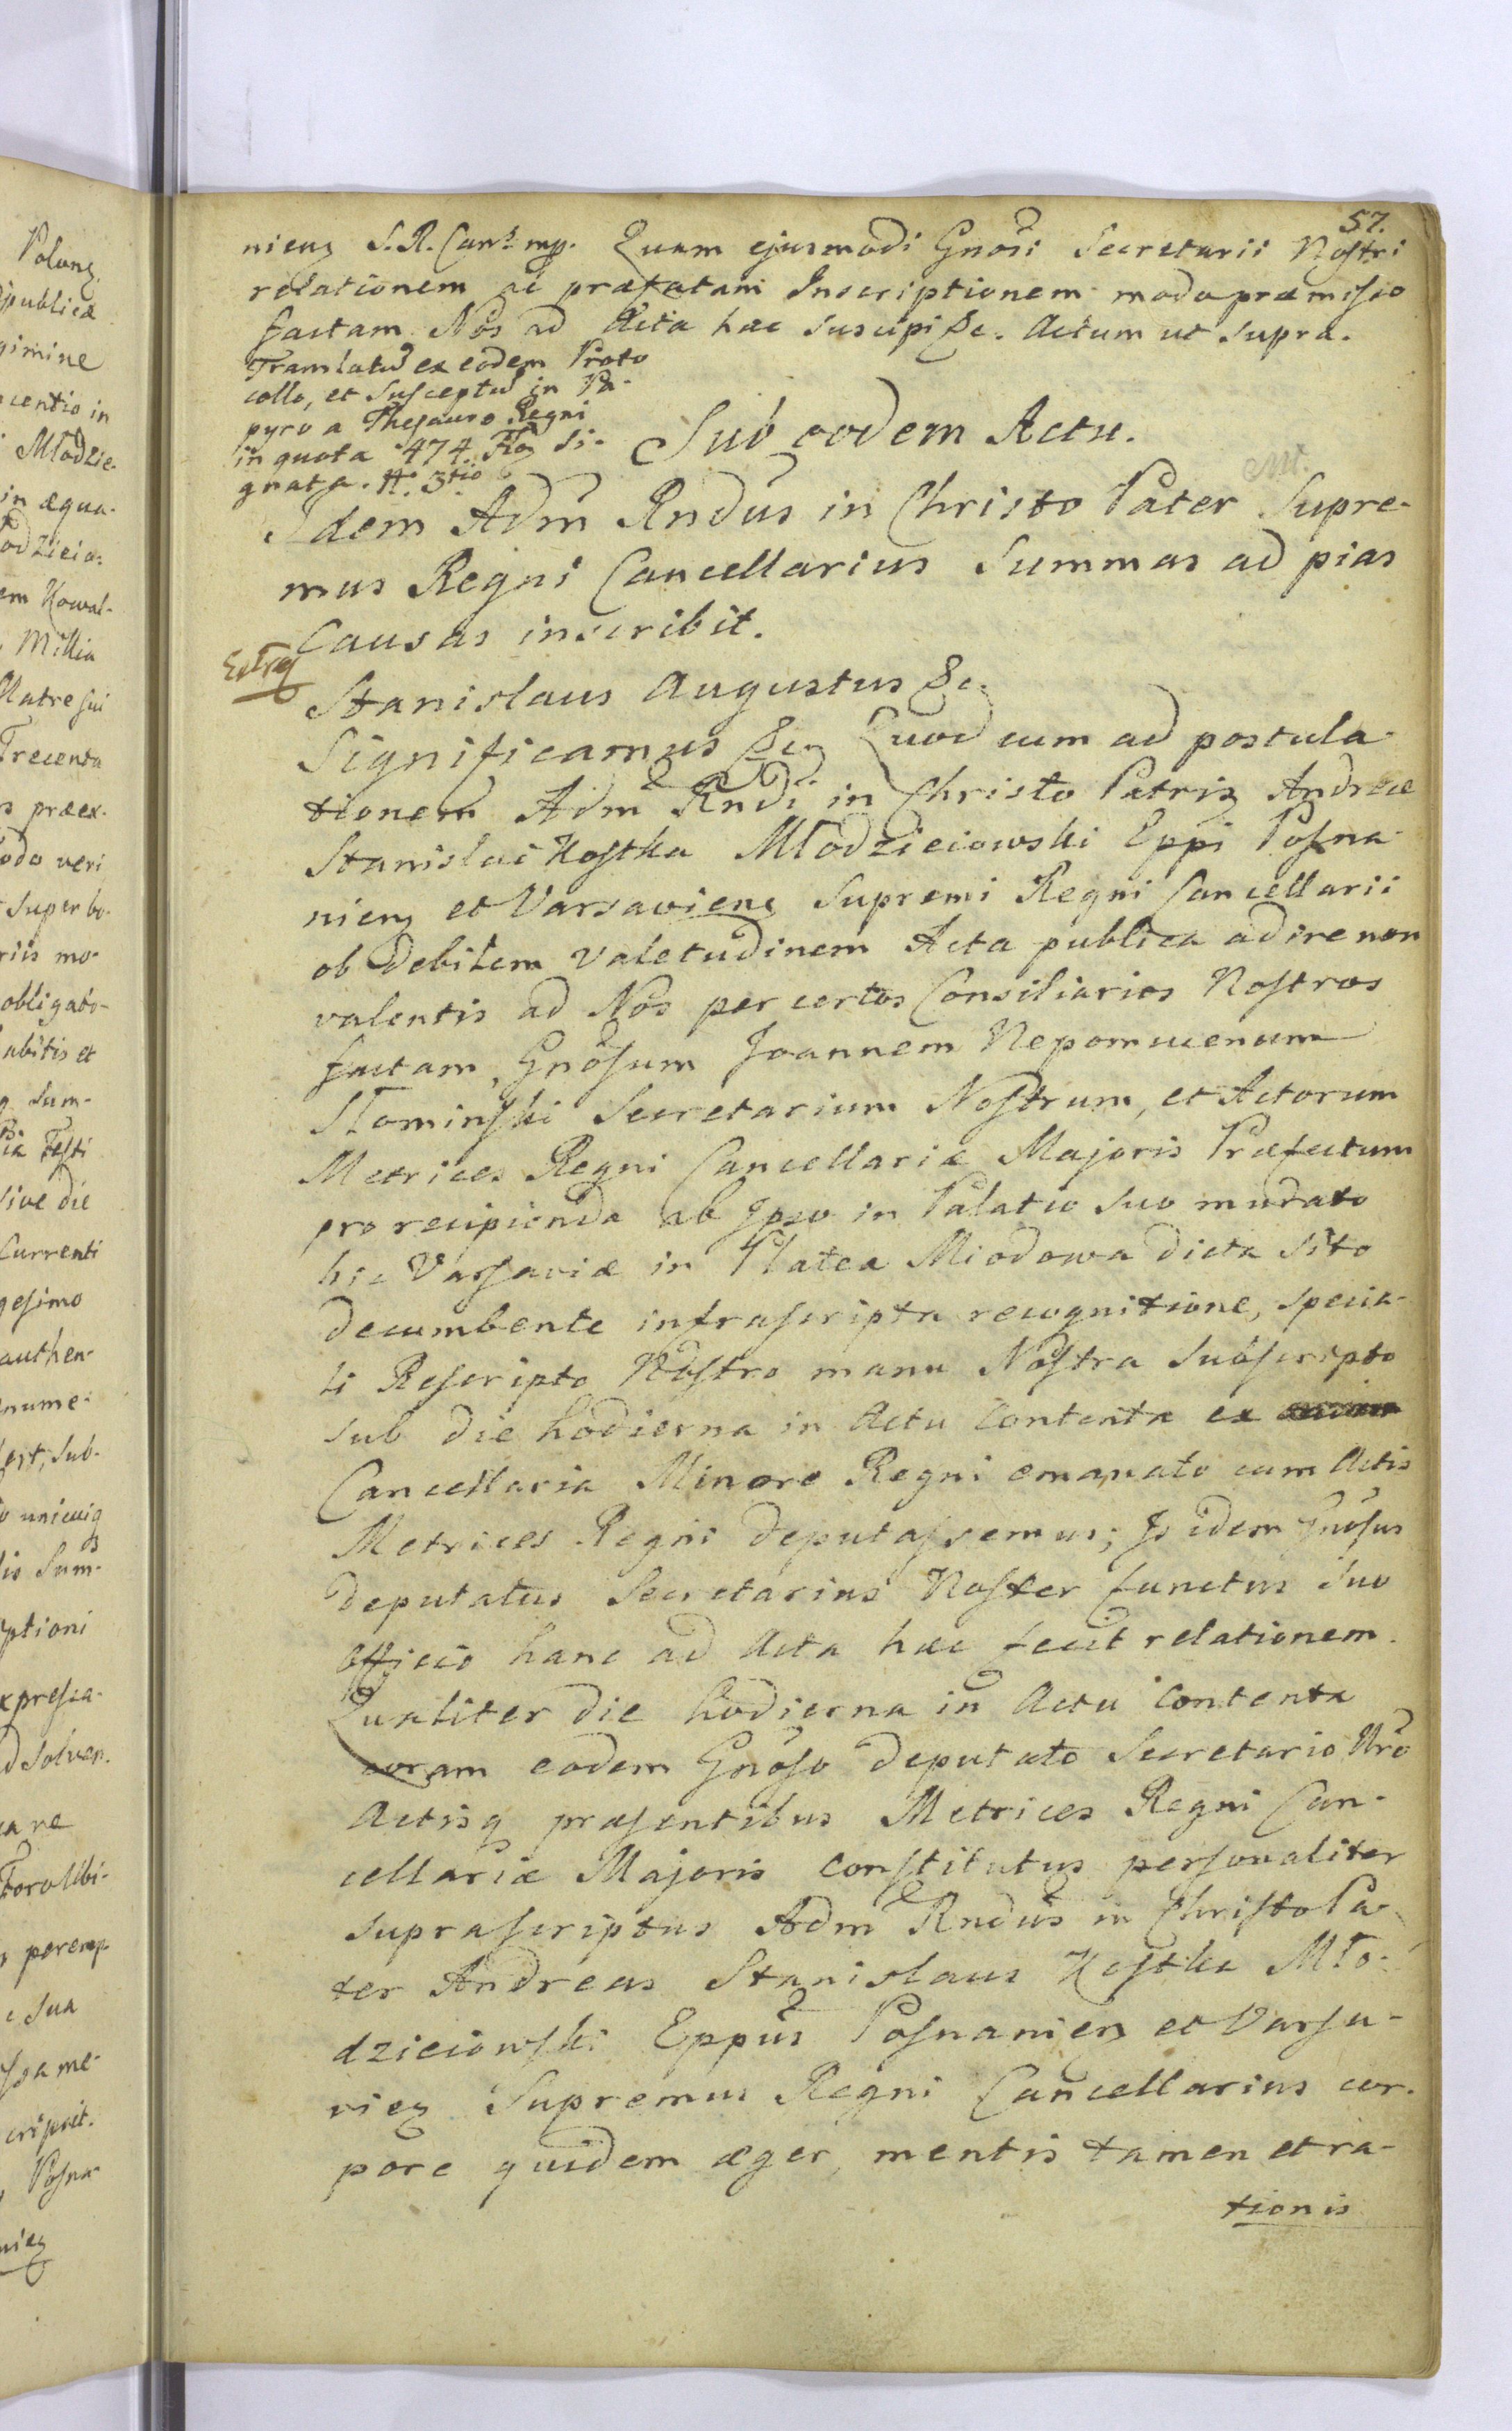 57.
nieng S.R. Canc. mp. Quam ejusmodi Gnosi Secretarii Nostri
relationem ac præfatam Inscriptionem modo præmisso
factam Nos ad Acta hæc suscipi &c. Actum ut supra.
Translatũ ex eodem Proto
collo, et Susceptũ in Pa-
pyro a Thesauro Regni
in quota 474. Flor Si-
gnata. N. 3tio
Sub eodem Actu.
Idem Adm Rndus in Christo Pater Supre-
mus Regni Cancellarius Summas ad pias
Causas inscribit.
Extrad
Stanislaus Augustus &c.
Significamus &c. Quod cum ad postula-
tionem Adm Rndi in Christo Patris Andreæ
Stanislai Kostka Młodzieiowski Eppi Posna-
niens et Varsaviens Supremi Regni Cancellarii
ob debilem valetudinem Acta publica adire non
valentis ad Nos per certos Consiliarios Nostros
factam, Gnosum Joannem Nepomucenum
Słominski Secretarium Nostrum, et Actorum
Metrices Regni Cancellariæ Majoris Præfectum
pro recipienda ab Ipso in Palatio suo murato
hic Varsaviæ in Platea Miodowa dicta sito
decumbente infrascripta recognitione, specia-
li Rescripto Nostro manu Nostra subscripto
sub die hodierna in Actu contenta ex
Cancellaria Minore Regni emanato cum Actis
Metrices Regni deputassemus; Is idem Gnosus
deputatus Secretarius Noster functus suo
officio hanc ad Acta hæc fecit relationem.
Qualiter die hodierna in Actu contenta
coram eodem Gnoso deputato Secretario Nro
Actisq præsentibus Metrices Regni Can-
cellariæ Majoris constitutus personaliter
suprascriptus Adm Rndus in Christo Pa-
ter Andreas Stanislaus Kostka Mło-
dzieiowski Eppus Posnaniens et Varsa-
viens Supremus Regni Cancellarius cor-
pore quidem æger, mentis tamen et ra-
tionis